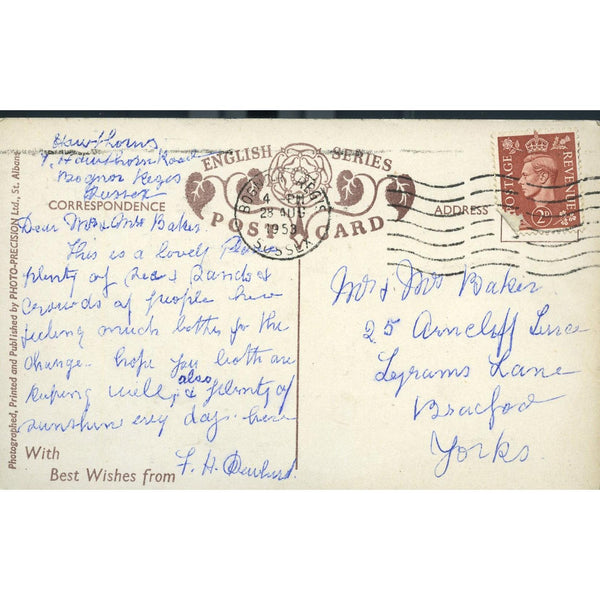 Hawthorns
7, Hawthorn Road
Bognor Regis
Sussex
ENGLISH SERIES
POST CARD
CORRESPONDENCE
ADDRESS
BOGNOR REGIS
4 PM
28 AUG
1953
SUSSEX
POSTAGE
REVENUE
2D
Dear Mr & Mrs Baker.
This is a lovely Place
plenty of Sea & Sands &
Crowds of people here
feeling much better for the
Change. hope you both are
keeping well, also plenty of
sunshine every day here
With
Best Wishes from
F. H.
Mr & Mrs Baker
25 Arncliff
Legrams Lane
Bradford
Yorks.
Photographed, Printed and Published by PHOTO-PRECISION Ltd., St. Albans